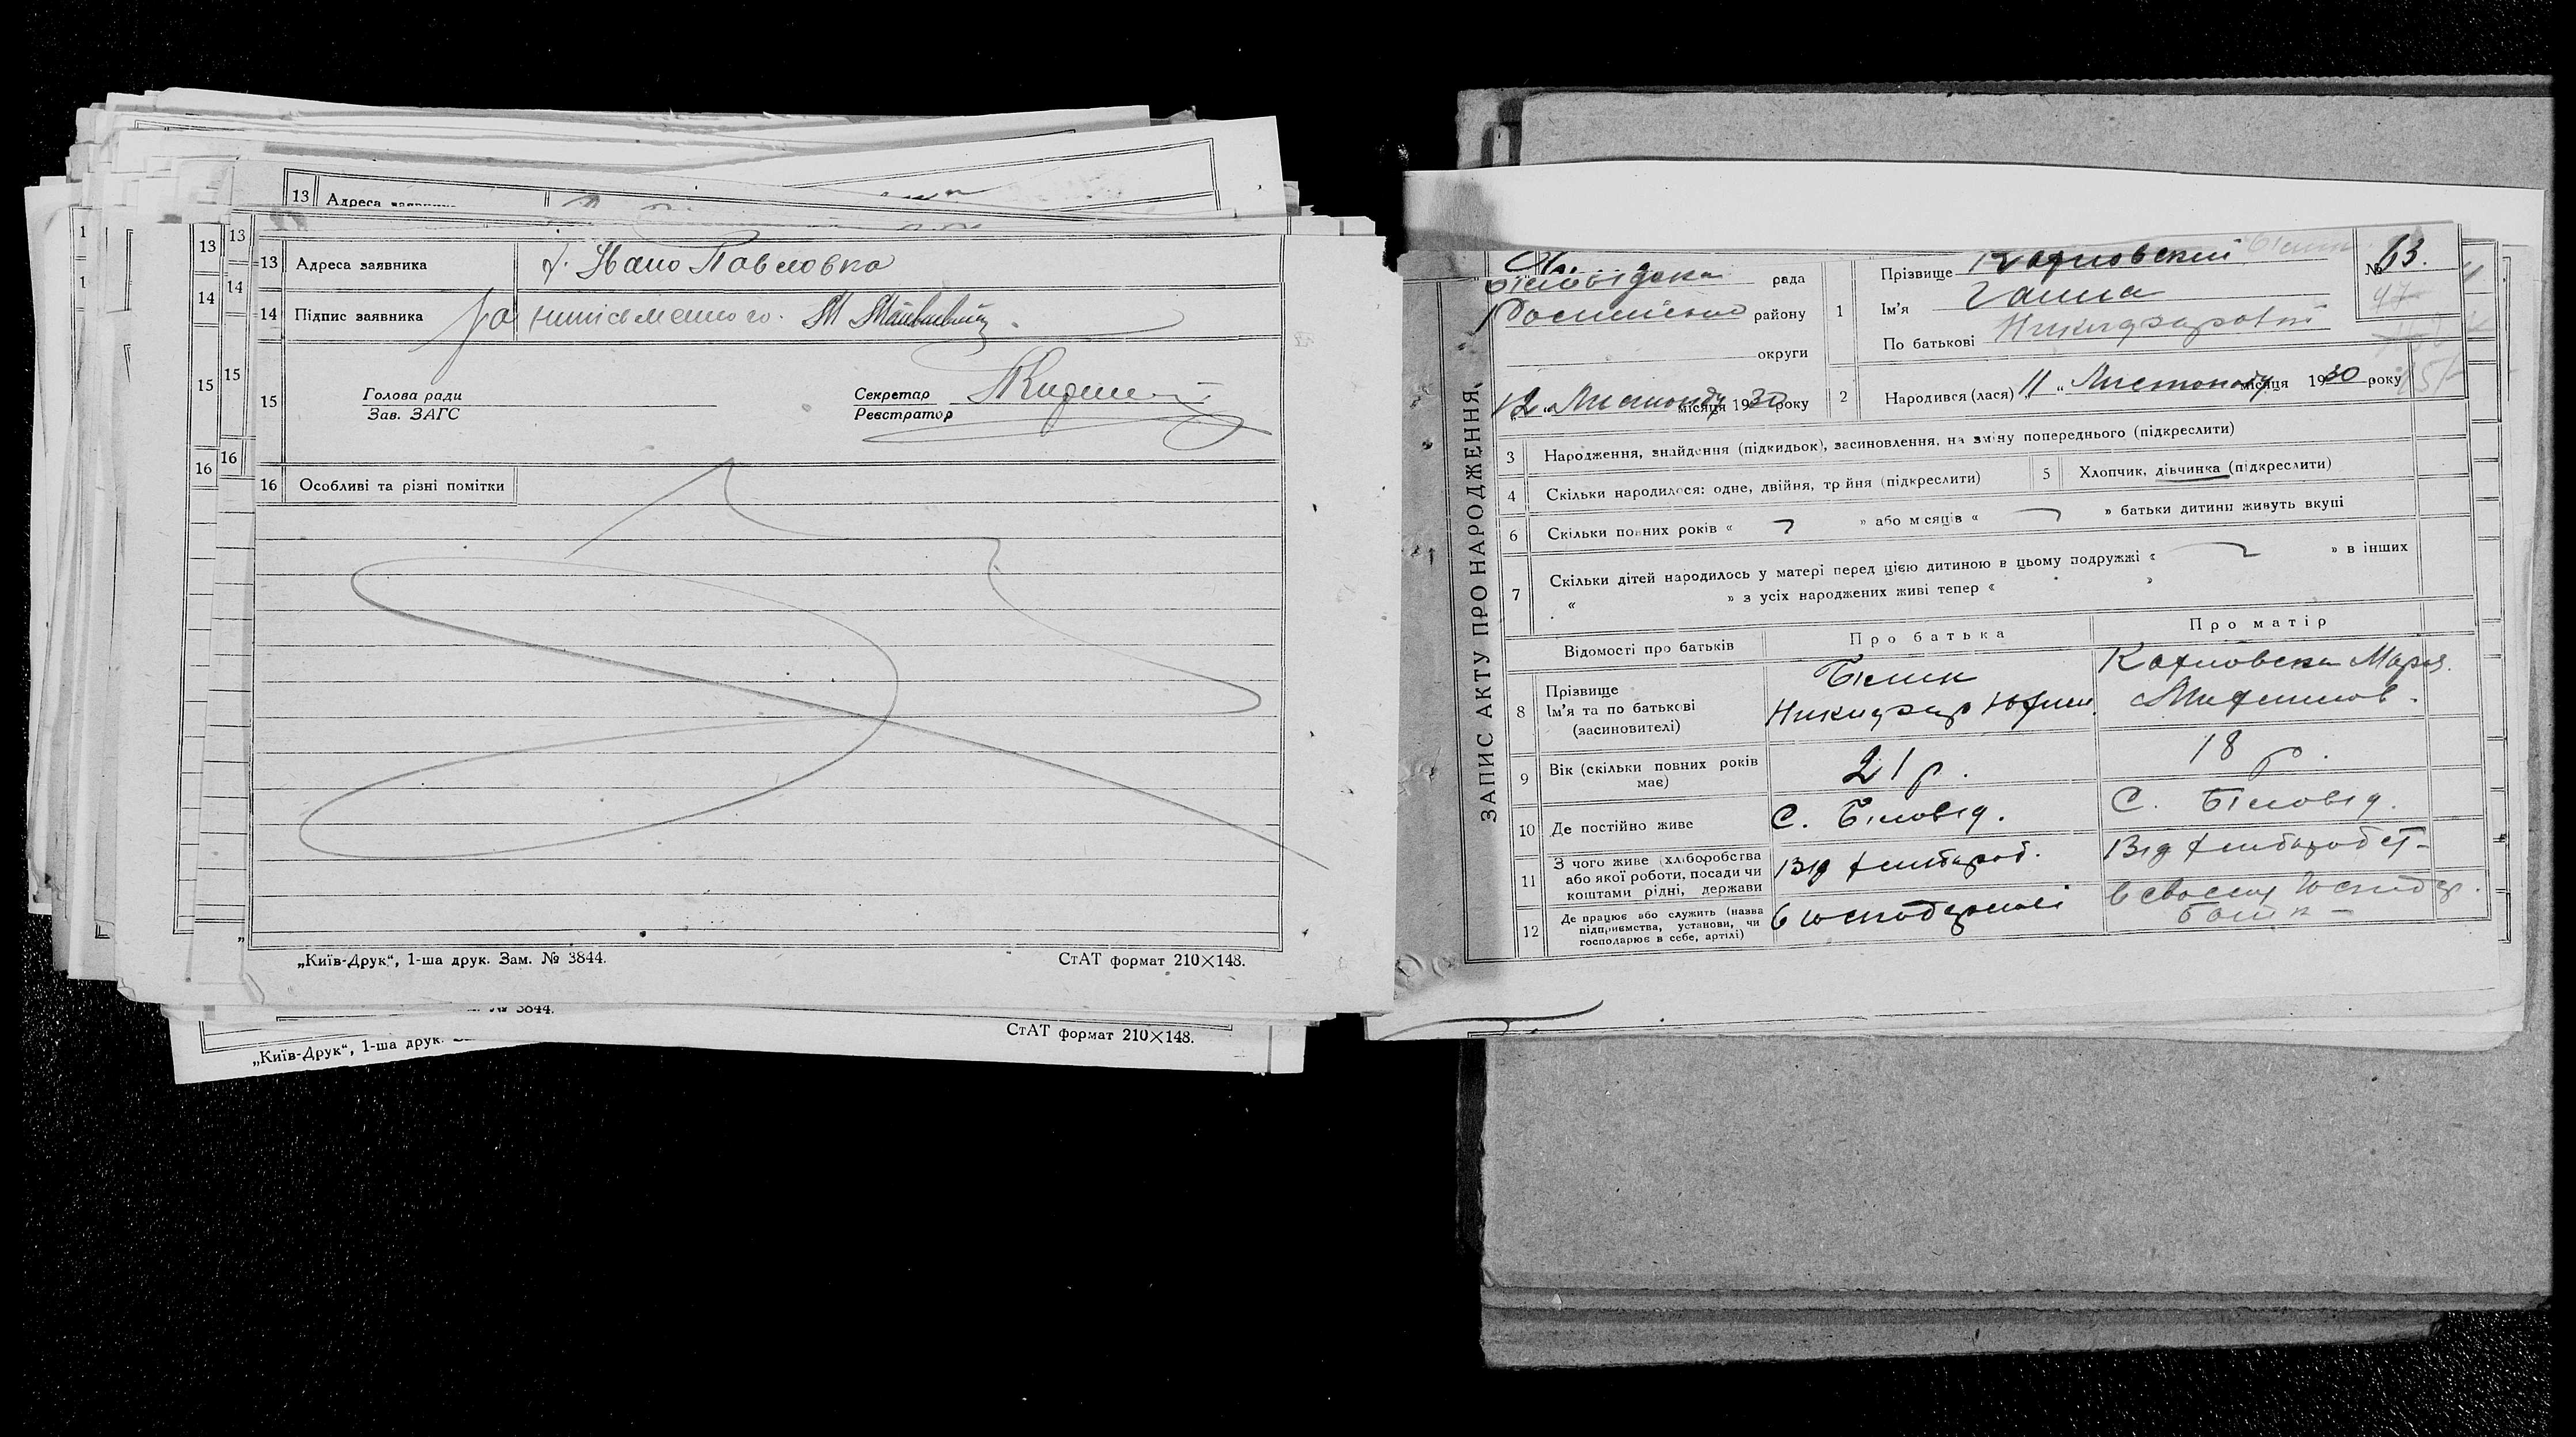 13 Адреса заявника
13 Адреса заявника х. Івано Павловка
14 Підпис заявника за неписьменного. М
15 Голова ради Секретар
Зав. ЗАГС Реєстратор
16 Особливі та різні помітки
„Київ-Друк“, 1-ша друк. Зам. № 3844.
СтАТ формат 210×148.
№ 3844.
„Київ-Друк“, 1-ша друк.
СтАТ формат 210×148.
ЗАПИС АКТУ ПРО НАРОДЖЕННЯ
рада
району
округи
12 „ Листопаду місяця 1930 року
№ 63.
47
1 Прізвище
Ім’я Ганна
По батькові
2 Народився (лася) „ 11 „ Листопаду місяця 1930 року
3 Народження, знайдення (підкидьок), засиновлення, на зміну попереднього (підкреслити)
4 Скільки народилося: одне, двійня, трійня (підкреслити)
5 Хлопчик, дівчинка (підкреслити)
6 Скільки повних років « » або місяців « » батьки дитини живуть вкупі
7 Скільки дітей народилось у матері перед цією дитиною в цьому подружжі « » в інших
« » з усіх народжених живі тепер « »
Відомості про батьків Про батька Про матір
8 Прізвище
Ім’я та по батькові
(засновителі)
Білик
Никифор
Марія
9 Вік (скільки повних років має) 21 р. 18 р.
10 Де постійно живе С. Біловід. С. Біловід.
11 З чого живе (хліборобства
або якої роботи, посади чи
коштами рідні, держави
Від хлібороб. Від хліборобст-
12 Де працює або служить (назва
підприємства, установи, чи
господарює в себе, артілі)
в своєму господар.
батьк-